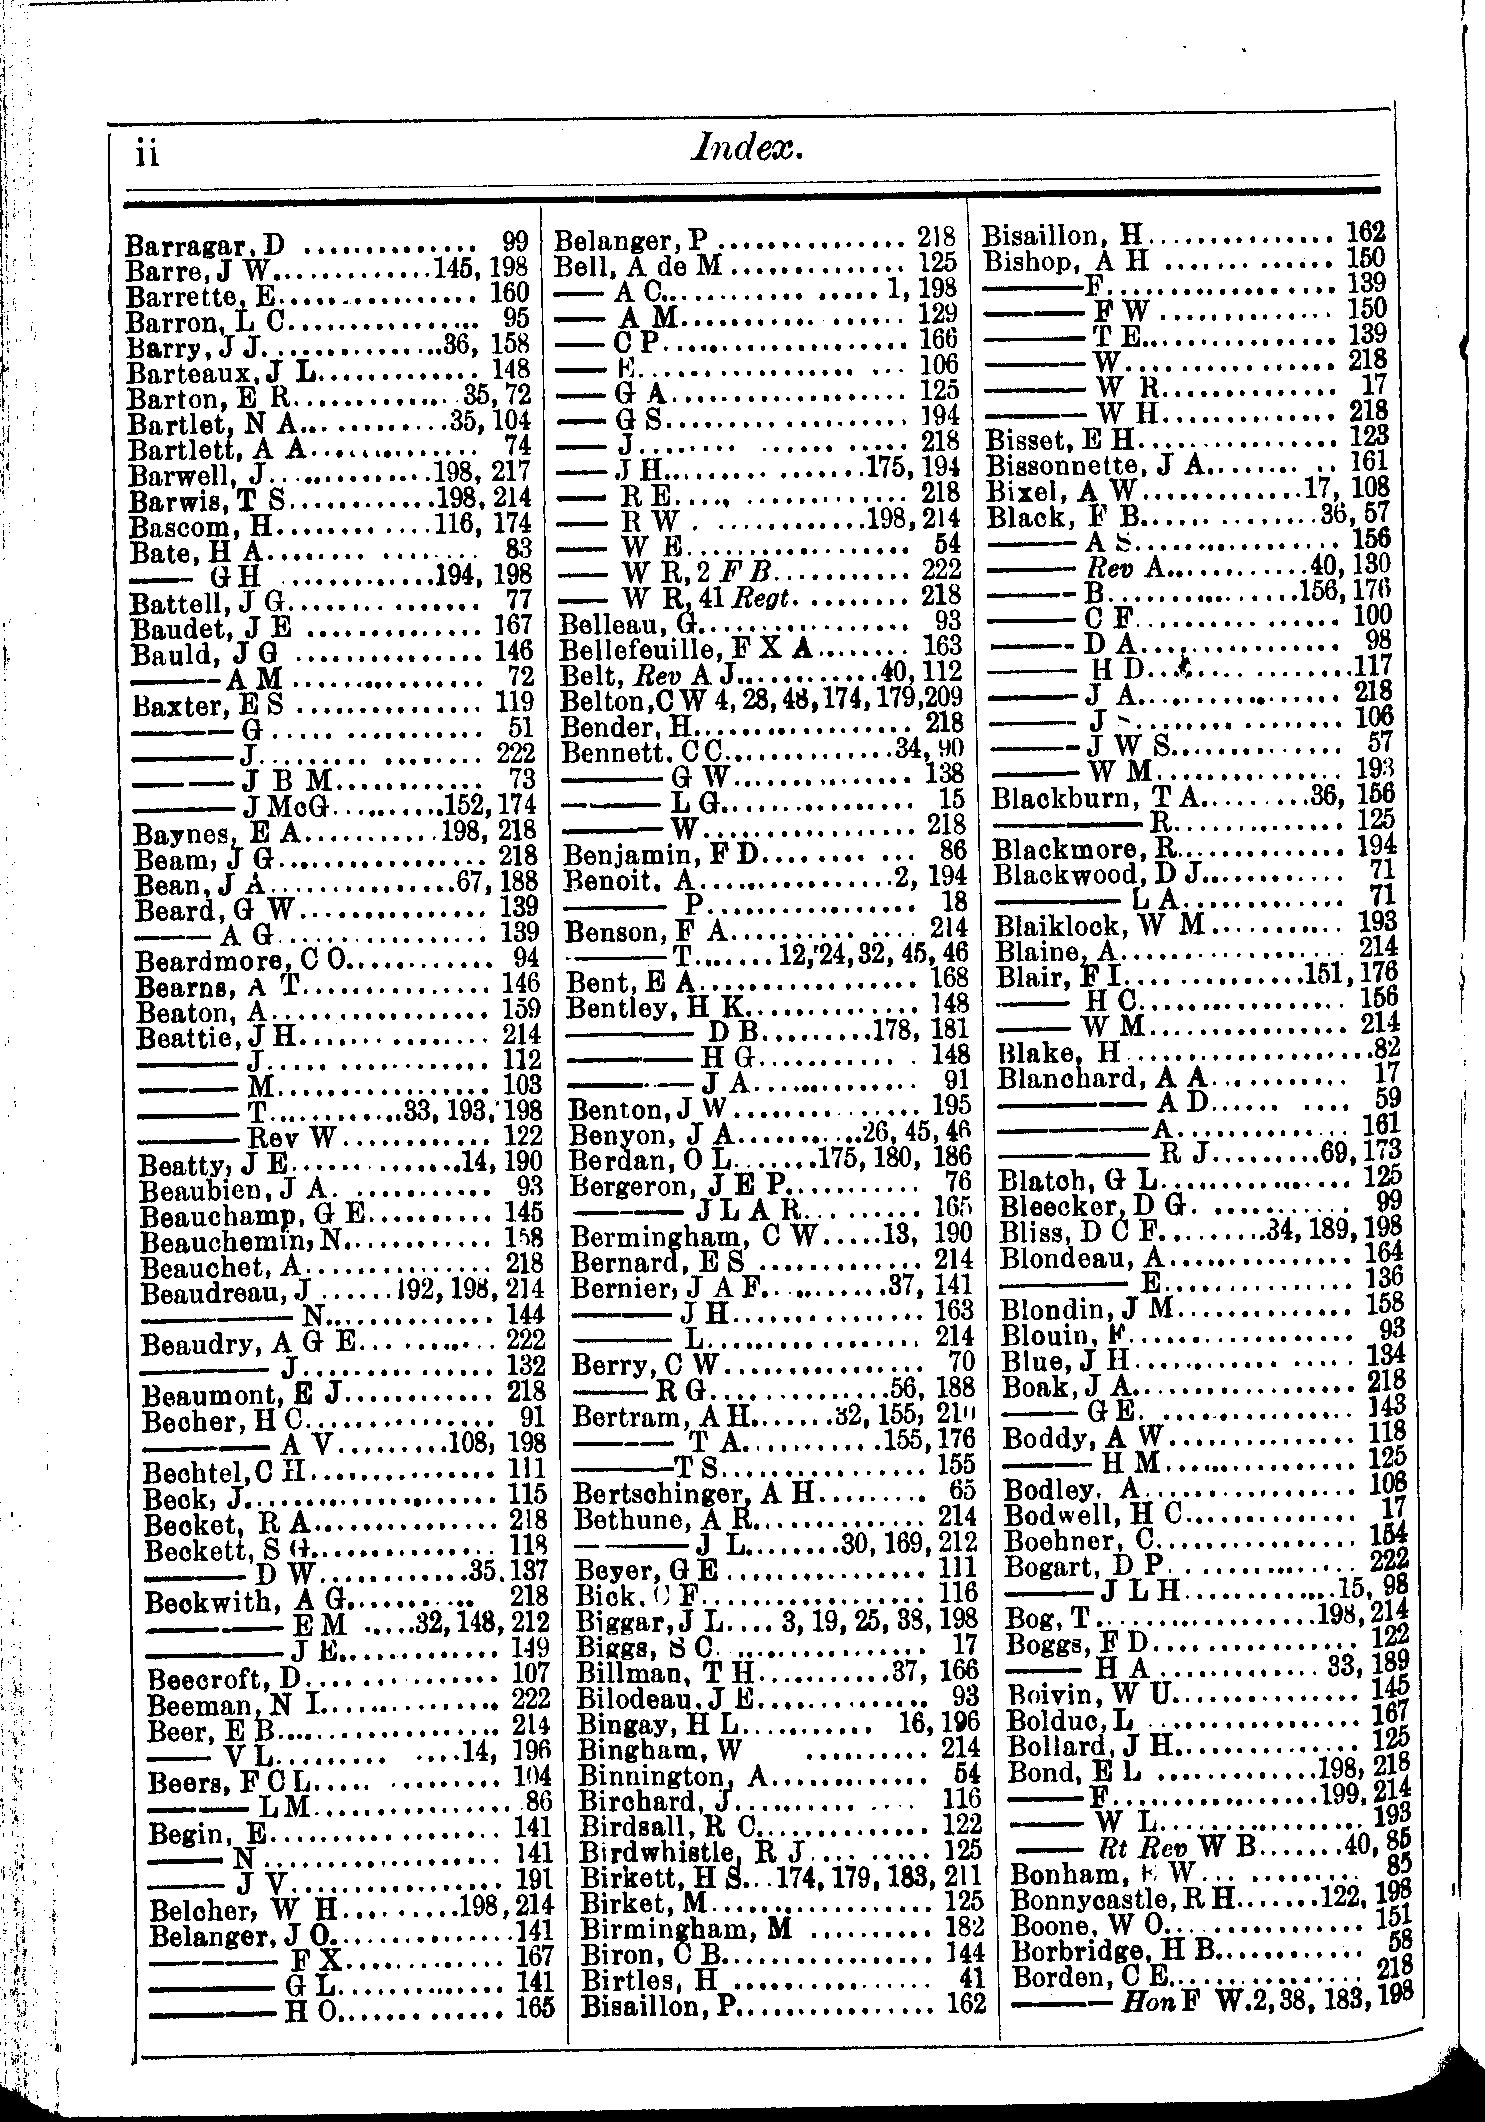 ii
Index.
Barragar, D .............. 99
Barre, J W.............145, 198
Barrette, E................ 160
Barron, L C................ 95
Barry, J J...............36, 158
Barteaux, J L............. 148
Barton, E R.............35, 72
Bartlet, N A.............35, 104
Bartlett, A A.............. 74
Barwell, J..............198, 217
Barwis, T S............198, 214
Bascom, H.............116, 174
Bate, H A................ 83
—— G H .............194, 198
Battell, J G............... 77
Baudet, J E .............. 167
Bauld, J G ............... 146
——— A M ............... 72
Baxter, E S ............... 119
——— G ................. 51
——— J.................. 222
——— J B M............ 73
——— J McG..........152, 174
Baynes, E A...........198, 218
Beam, J G................. 218
Bean, J A...............67, 188
Beard, G W............... 139
——— A G................. 139
Beardmore, C O............ 94
Bearns, A T............... 146
Beaton, A................. 159
Beattie, J H............... 214
——— J.................. 112
——— M................. 103
——— T...........33, 193, 198
——— Rev W............ 122
Beatty, J E..............14, 190
Beaubien, J A. ........... 93
Beauchamp, G E.......... 145
Beauchemin, N............ 158
Beauchet, A............... 218
Beaudreau, J ......192, 198, 214
———— N............. 144
Beaudry, A G E........... 222
———— J............... 132
Beaumont, E J............ 218
Becher, H C............... 91
———— A V.........108, 198
Bechtel, C H............... 111
Beck, J.................... 115
Becket, R A............... 218
Beckett, S G............... 118
——— D W............35, 137
Beckwith, A G........... 218
———— E M .....32, 148, 212
———— J E............. 149
Beecroft, D............... 107
Beeman, N I.............. 222
Beer, E B.................. 214
—— V L.............14, 196
Beers, F C L.............. 104
——— L M................ 86
Begin, E.................. 141
—— N................... 141
—— J V................. 191
Belcher, W H..........198, 214
Belanger, J O...............141
———— F X............. 167
———— G L............. 141
———— H O............. 165
Belanger, P ............... 218
Bell, A de M .............. 125
—— A C................ 1, 198
—— A M................ 129
—— C P................. 166
—— E................... 106
—— G A................. 125
—— G S................. 194
—— J................... 218
—— J H...............175, 194
—— R E................. 218
—— R W . ............198, 214
—— W E................. 54
—— W R, 2 F B........... 222
—— W R, 41 Regt. ......... 218
Belleau, G................. 93
Bellefeuille, F X A........ 163
Belt, Rev A J............40, 112
Belton, C W 4, 28, 48, 174, 179, 209
Bender, H................. 218
Bennett, C C.............34, 90
——— G W.............. 138
——— L G............... 15
——— W................. 218
Benjamin, F D............ 86
Benoit, A................2, 194
——— P................. 18
Benson, F A............... 214
——— T....... 12, 24, 32, 45, 46
Bent, E A................. 168
Bentley, H K.............. 148
———— D B.........178, 181
———— H G............. 148
———— J A............. 91
Benton, J W............... 195
Benyon, J A..........26, 45, 46
Berdan, O L.......175, 180, 186
Bergeron, J E P........... 76
———— J L A R......... 165
Bermingham, C W.....13, 190
Bernard, E S ............. 214
Bernier, J A F...........37, 141
———— J H............... 163
———— L................. 214
Berry, C W................ 70
——— R G..............56, 188
Bertram, A H.......32, 155, 210
———— T A...........155, 176
———— T S................ 155
Bertschinger, A H......... 65
Bethune, A R.............. 214
———— J L........30, 169, 212
Beyer, G E ................ 111
Bick, C F.................. 116
Biggar, J L.... 3, 19, 25, 38, 198
Biggs, S C. ............... 17
Billman, T H...........37, 166
Bilodeau, J E.............. 93
Bingay, H L........... 16, 196
Bingham, W .......... 214
Binnington, A............. 54
Birchard, J............... 116
Birdsall, R C.............. 122
Birdwhistle, R J.......... 125
Birkett, H S...174, 179, 183, 211
Birket, M.................. 125
Birmingham, M .......... 182
Biron, C B................. 144
Birtles, H ................ 41
Bisaillon, P................ 162
Bisaillon, H............... 162
Bishop, A H .............. 150
——— F.................. 139
——— F W .............. 150
——— T E................ 139
——— W................. 218
——— W R.............. 17
——— W H.............. 218
Bisset, E H................ 123
Bissonnette, J A.......... 161
Bixel, A W.............17, 108
Black, F B..............36, 57
——— A S................ 156
——— Rev A............40, 130
——— B...............156, 176
——— C F................ 100
——— D A................ 98
——— H D...............117
——— J A................ 218
——— J ................. 106
——— J W S.............. 57
——— W M............... 193
Blackburn, T A.........36, 156
———— R.............. 125
Blackmore, R............. 194
Blackwood, D J........... 71
———— L A............. 71
Blaiklock, W M........... 193
Blaine, A................. 214
Blair, F I..............151, 176
—— H C................ 156
—— W M................ 214
Blake, H ...................82
Blanchard, A A........... 17
———— A D.......... 59
———— A.............. 161
———— R J.........69, 173
Blatch, G L............... 125
Bleecker, D G. ........... 99
Bliss, D C F.........34, 189, 198
Blondeau, A............... 164
———— E............... 136
Blondin, J M.............. 158
Blouin, F.................. 93
Blue, J H................. 134
Boak, J A................. 218
——— G E. ............... 143
Boddy, A W............... 118
——— H M............... 125
Bodley, A................. 108
Bodwell, H C.............. 17
Boehner, C................ 154
Bogart, D P............... 222
——— J L H............15, 98
Bog, T..................198, 214
Boggs, F D................ 122
——— H A ............. 33, 189
Boivin, W U............... 145
Bolduc, L ................ 167
Bollard, J H............... 125
Bond, E L .............198, 218
——— F.................199, 214
—— W L................. 193
—— Rt Rev W B.......40, 85
Bonham, E W............. 85
Bonnycastle, R H.......122, 198
Boone, W O............... 151
Borbridge, H B............ 58
Borden, C E............... 218
——— Hon F W.2, 38, 183, 198